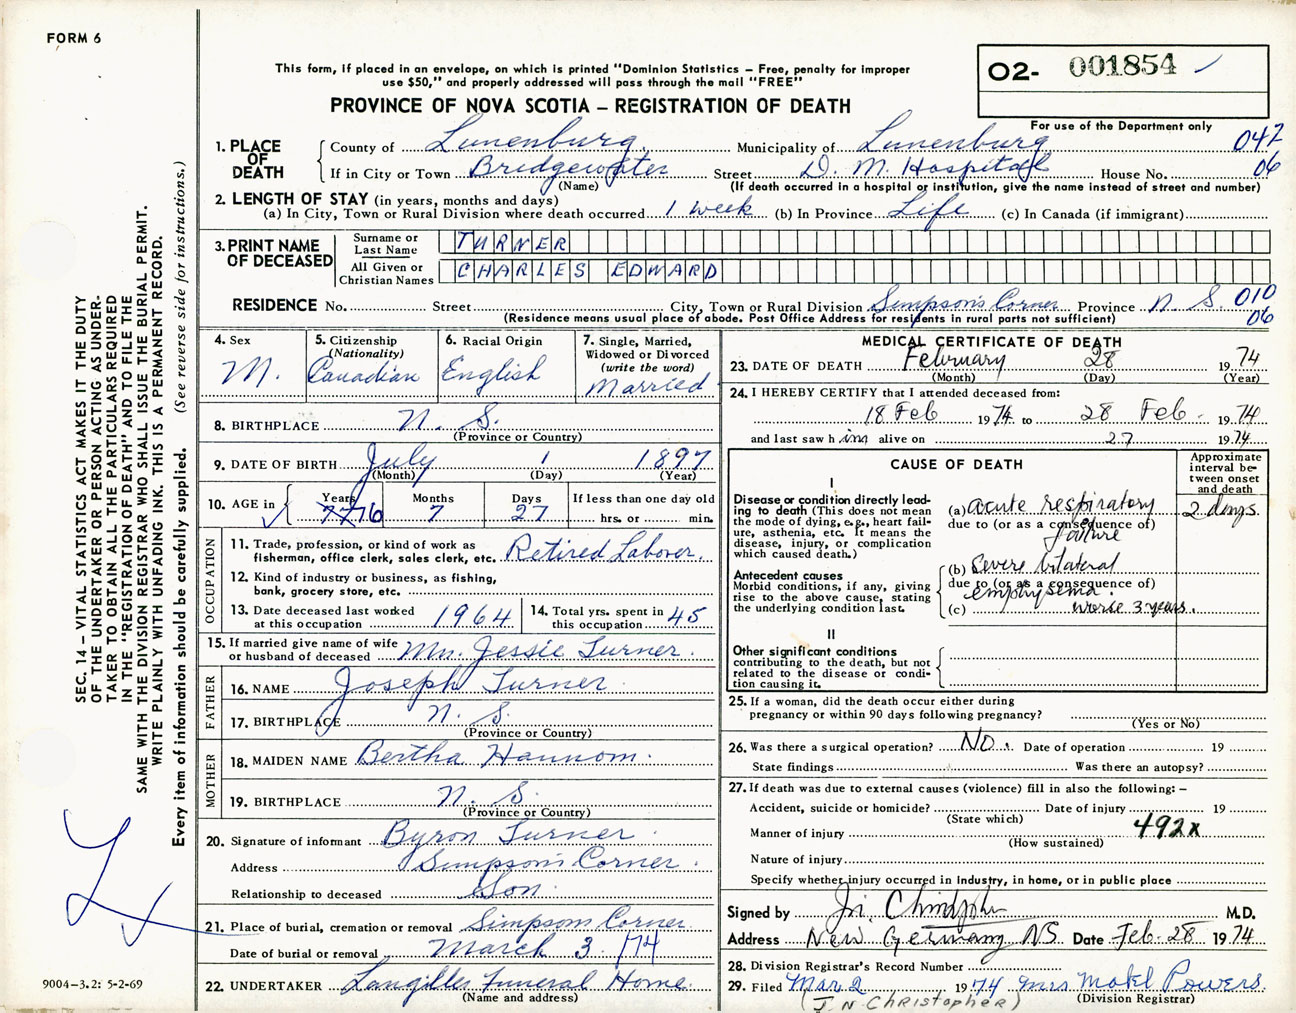 FORM 6
This form, if placed in an envelope, on which is printed "Dominion Statistics – Free, penalty for improper
use $50," and properly addressed will pass through the mail "FREE"
PROVINCE OF NOVA SCOTIA – REGISTRATION OF DEATH
02- 001854
For use of the Department only
1. PLACE OF DEATH County of Lunenburg Municipality of Lunenburg 047
If in City or Town Bridgewater Street D. M. Hospital House No. 06
(Name) (If death occurred in a hospital or institution, give the name instead of street and number)
2. LENGTH OF STAY (in years, months and days)
(a) In City, Town or Rural Division where death occurred 1 week (b) In Province Life (c) In Canada (if immigrant)
3. PRINT NAME OF DECEASED Surname or Last Name TURNER
All Given or Christian Names CHARLES EDWARD
RESIDENCE No. Street City, Town or Rural Division Simpson's Corner Province N. S. 010
(Residence means usual place of abode. Post Office Address for residents in rural parts not sufficient) 06
4. Sex M.
5. Citizenship (Nationality) Canadian
6. Racial Origin English
7. Single, Married, Widowed or Divorced (write the word) Married
8. BIRTHPLACE N. S.
(Province or Country)
9. DATE OF BIRTH July 1 1897
(Month) (Day) (Year)
10. AGE in Years 77 76 Months 7 Days 27 If less than one day old
hrs. or min.
OCCUPATION
11. Trade, profession, or kind of work as
fisherman, office clerk, sales clerk, etc. Retired Laborer.
12. Kind of industry or business, as fishing,
bank, grocery store, etc.
13. Date deceased last worked
at this occupation 1964
14. Total yrs. spent in
this occupation 45
15. If married give name of wife
or husband of deceased Mrs. Jessie Turner.
FATHER
16. NAME Joseph Turner
17. BIRTHPLACE N. S.
(Province or Country)
MOTHER
18. MAIDEN NAME Bertha Hannom.
19. BIRTHPLACE N. S.
(Province or Country)
20. Signature of informant Byron Turner
Address Simpson's Corner.
Relationship to deceased Son.
21. Place of burial, cremation or removal Simpsons Corner.
Date of burial or removal March 3 /74
22. UNDERTAKER Langilles Funeral Home.
(Name and address)
MEDICAL CERTIFICATE OF DEATH
23. DATE OF DEATH February 28 1974
(Month) (Day) (Year)
24. I HEREBY CERTIFY that I attended deceased from:
18 Feb 1974 to 28 Feb. 1974
and last saw him alive on 27 1974
CAUSE OF DEATH
Approximate interval between onset and death
I
Disease or condition directly leading to death (This does not mean the mode of dying, e.g., heart failure, asthenia, etc. It means the disease, injury, or complication which caused death.)
(a) acute respiratory 2 days.
due to (or as a consequence of)
failure
Antecedent causes
Morbid conditions, if any, giving rise to the above cause, stating the underlying condition last.
(b) Severe bilateral
due to (or as a consequence of)
emphysema.
(c) worse 3 years.
II
Other significant conditions
contributing to the death, but not related to the disease or condition causing it.
25. If a woman, did the death occur either during
pregnancy or within 90 days following pregnancy?
(Yes or No)
26. Was there a surgical operation? No. Date of operation 19
State findings Was there an autopsy?
27. If death was due to external causes (violence) fill in also the following: –
Accident, suicide or homicide? Date of injury 19
(State which)
Manner of injury 492x
(How sustained)
Nature of injury
Specify whether injury occurred in industry, in home, or in public place
Signed by M.D.
Address New Germany NS Date Feb. 28 1974
28. Division Registrar's Record Number
29. Filed Mar 2 1974 Mrs Mabel Powers.
(J N Christopher) (Division Registrar)
SEC. 14 – VITAL STATISTICS ACT MAKES IT THE DUTY
OF THE UNDERTAKER OR PERSON ACTING AS UNDER-
TAKER TO OBTAIN ALL THE PARTICULARS REQUIRED
IN THE "REGISTRATION OF DEATH" AND TO FILE THE
SAME WITH THE DIVISION REGISTRAR WHO SHALL ISSUE THE BURIAL PERMIT.
WRITE PLAINLY WITH UNFADING INK. THIS IS A PERMANENT RECORD.
Every item of information should be carefully supplied. (See reverse side for instructions.)
9004-3.2: 5-2-69